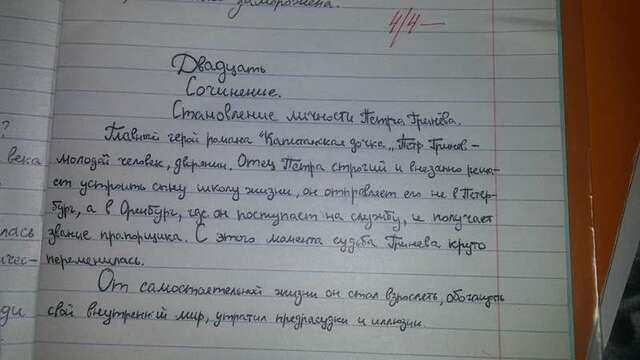 заморожена.
4/4—
Двадцать
Сочинение.
Становление личности Петра Гринёва.
?
Главный герой романа "Капитанская дочка„ Пётр Гринёв -
века
молодой человек, дворянин. Отец Петра строгий и внезапно реша-
ет устроить сыну школу жизни, он отправляет его не в Петер-
бург, а в Оренбург, где он поступает на службу, и получает
лась
звание прапорщика. С этого момента судьба Гринева круто
чес-
переменилась.
От самостоятельной жизни он стал взрослеть, обогащать
ди
свой внутренний мир, утратил предрасудки и иллюзии.